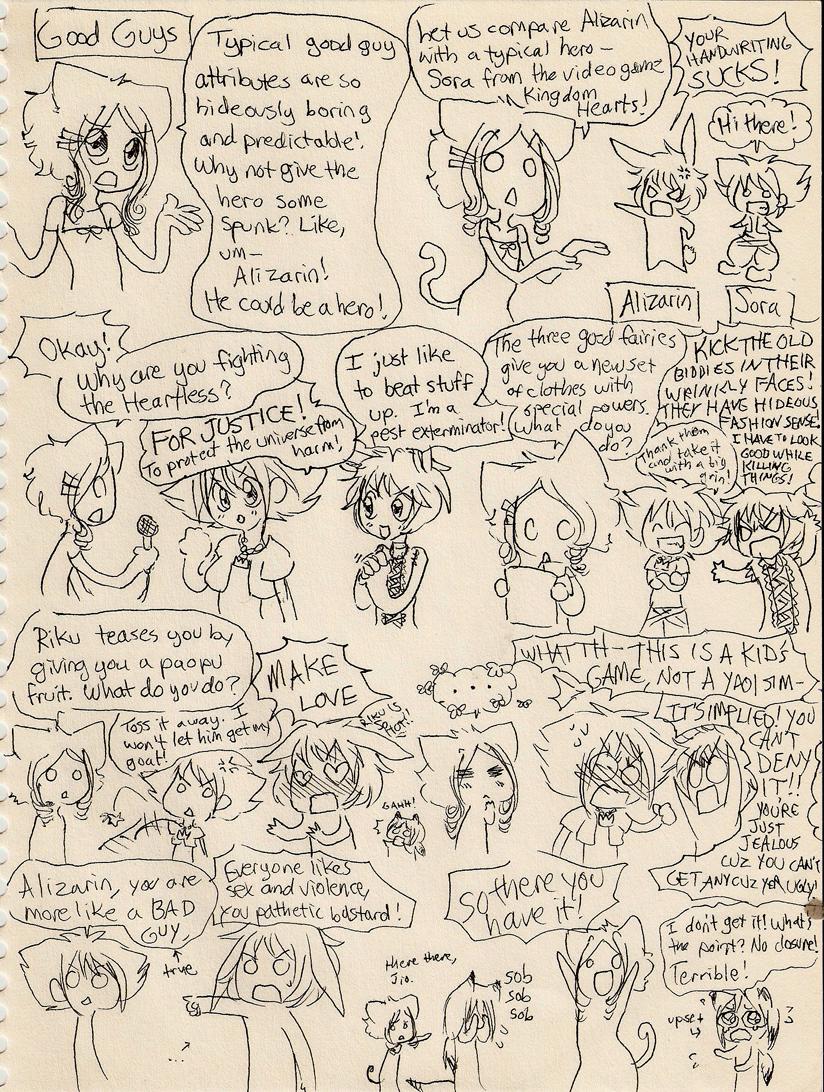 Good Guys
Typical good guy
attributes are so
hideously boring
and predictable!
Why not give the
hero some
spunk? Like,
um—
Alizarin!
He could be a hero!
Let us compare Alizarin
with a typical hero—
Sora from the video game
Kingdom
Hearts!
YOUR
HANDWRITING
SUCKS!
Hi there!
Alizarin
Sora
Okay!
Why are you fighting
the Heartless?
FOR JUSTICE!
To protect the universe from
harm!
I just like
to beat stuff
up. I'm a
pest exterminator!
The three good fairies
give you a new set
of clothes with
special powers.
What do you
do?
Thank them
and take it
with a big
grin!
KICK THE OLD
BIDDIES IN THEIR
WRINKLY FACES!
THEY HAVE HIDEOUS
FASHION SENSE!
I HAVE TO LOOK
GOOD WHILE
KILLING
THINGS!
Riku teases you by
giving you a paopu
fruit. What do you do?
Toss it away. I
won't let him get my
goat!
MAKE
LOVE
RIKU IS
HOT!
GAHH!
...
WHAT TH— THIS IS A KID'S
GAME, NOT A YAOI SIM—
IT'S IMPLIED! YOU
CAN'T
DENY
IT!!
YOU'RE
JUST
JEALOUS
CUZ YOU CAN'T
GET ANY CUZ YER UGLY!
Alizarin, you are
more like a BAD
GUY.
↑
true
Everyone likes
sex and violence,
you pathetic bastard!
...
there there,
Jio.
sob
sob
sob
So there you
have it!
I don't get it! What's
the point? No closure!
Terrible!
upset